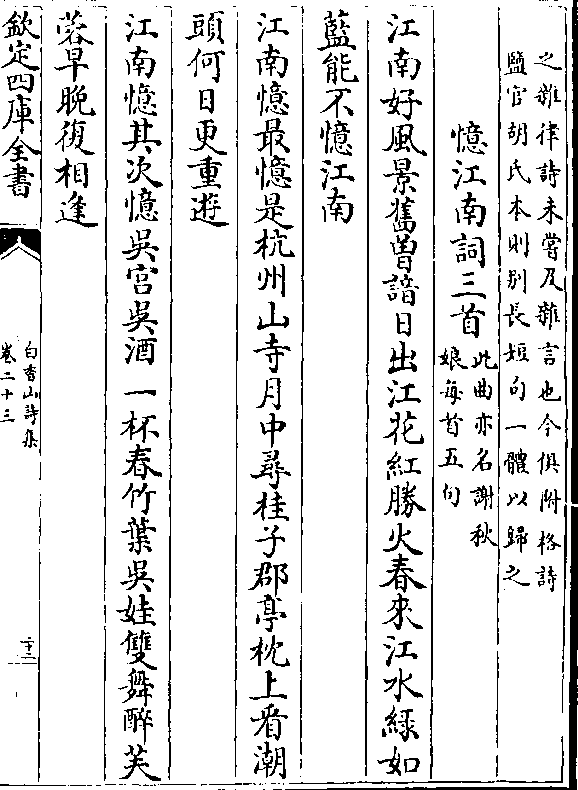 之雜律詩未嘗及雜言也今俱附格詩
鹽官胡氏本則别長短句一體以歸之
憶江南詞三首
此曲亦名謝秋
娘每首五句
江南好風景舊曾諳日出江花紅勝火春來江水緑如
藍能不憶江南
江南憶最憶是杭州山寺月中尋桂子郡亭枕上看潮
頭何日更重遊
江南憶其次憶吳宫吳酒一杯春竹葉吳娃雙舞醉芙
蓉早晚復相逢
欽定四庫全書
白香山詩集
卷二十三
二十三